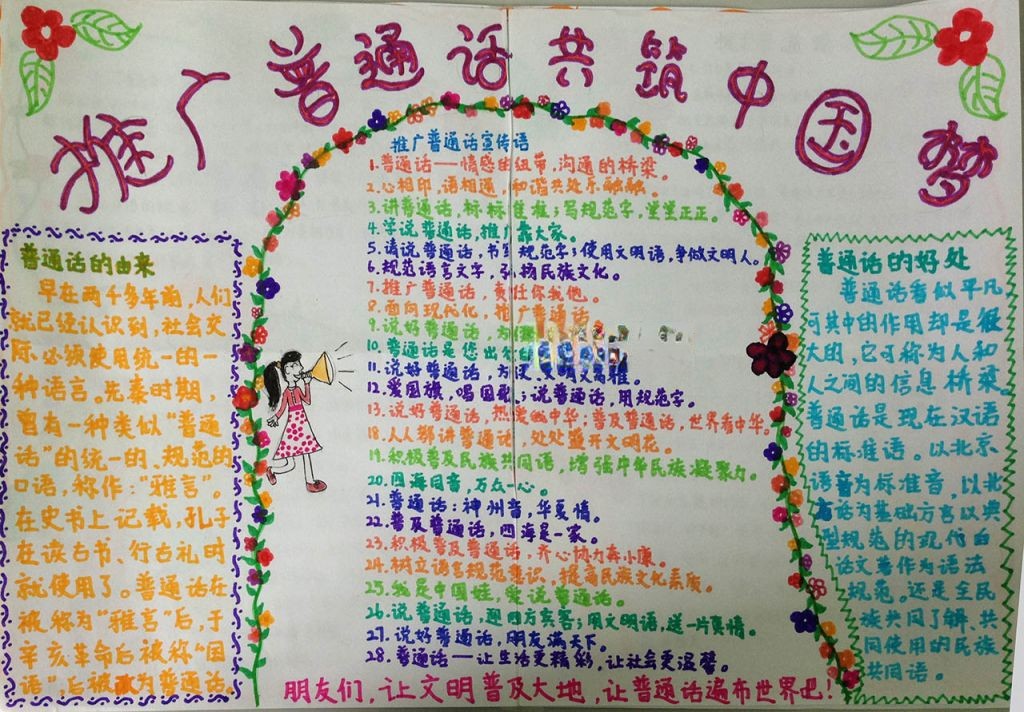 推广普通话共筑中国梦
普通话的由来
早在两千多年前,人们
就已经认识到,社会交
际必须使用统一的一
种语言。先秦时期,
曾有一种类似“普通
话”的统一的、规范的
口语,称作:“雅言”。
在史书上记载,孔子
在读古书、行古礼时
就使用了。普通话在
被称为“雅言”后,于
辛亥革命后被称“国
语”,后被改为普通话。
推广普通话宣传语
1.普通话——情感的纽带,沟通的桥梁。
2.心相印,语相通,和谐共处乐融融。
3.讲普通话,标标准准;写规范字,堂堂正正。
4.学说普通话,推广靠大家。
5.请说普通话,书写规范字;使用文明语,争做文明人。
6.规范语言文字,弘扬民族文化。
7.推广普通话,责任你我他。
8.面向现代化,推广普通话
9.说好普通话,方便
10.普通话是您出
11.说好普通话,方便 文明又高雅。
12.爱国旗,唱国歌;说普通话,用规范字。
13.说好普通话,热爱我中华;普及普通话,世界看中华。
18.人人都讲普通话,处处盛开文明花。
19.积极普及民族共同语,增强中华民族凝聚力。
20.四海同音,万众一心。
21.普通话:神州音,华夏情。
22.普及普通话,四海是一家。
23.积极普及普通话,齐心协力奔小康。
24.树立语言规范意识,提高民族文化素质。
25.我是中国娃,爱说普通话。
26.说普通话,迎四方宾客;用文明语,送一片真情。
27.说好普通话,朋友满天下。
28.普通话——让生活更精彩,让社会更温馨。
朋友们,让文明普及大地,让普通话遍布世界吧!
普通话的好处
普通话看似平凡
可其中的作用却是很
大的,它可称为人和
人之间的信息桥梁。
普通话是现在汉语
的标准语。以北京
语音为标准音,以北
方话为基础方言以典
型规范的现代白
话文著作为语法
规范。还是全民
族共同了解、共
同使用的民族
共同语。